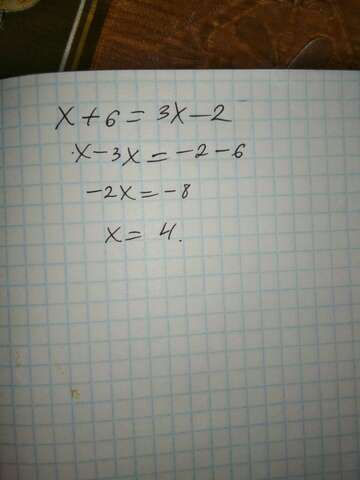 x+6=3x-2
x-3x=-2-6
-2x=-8
x=4.